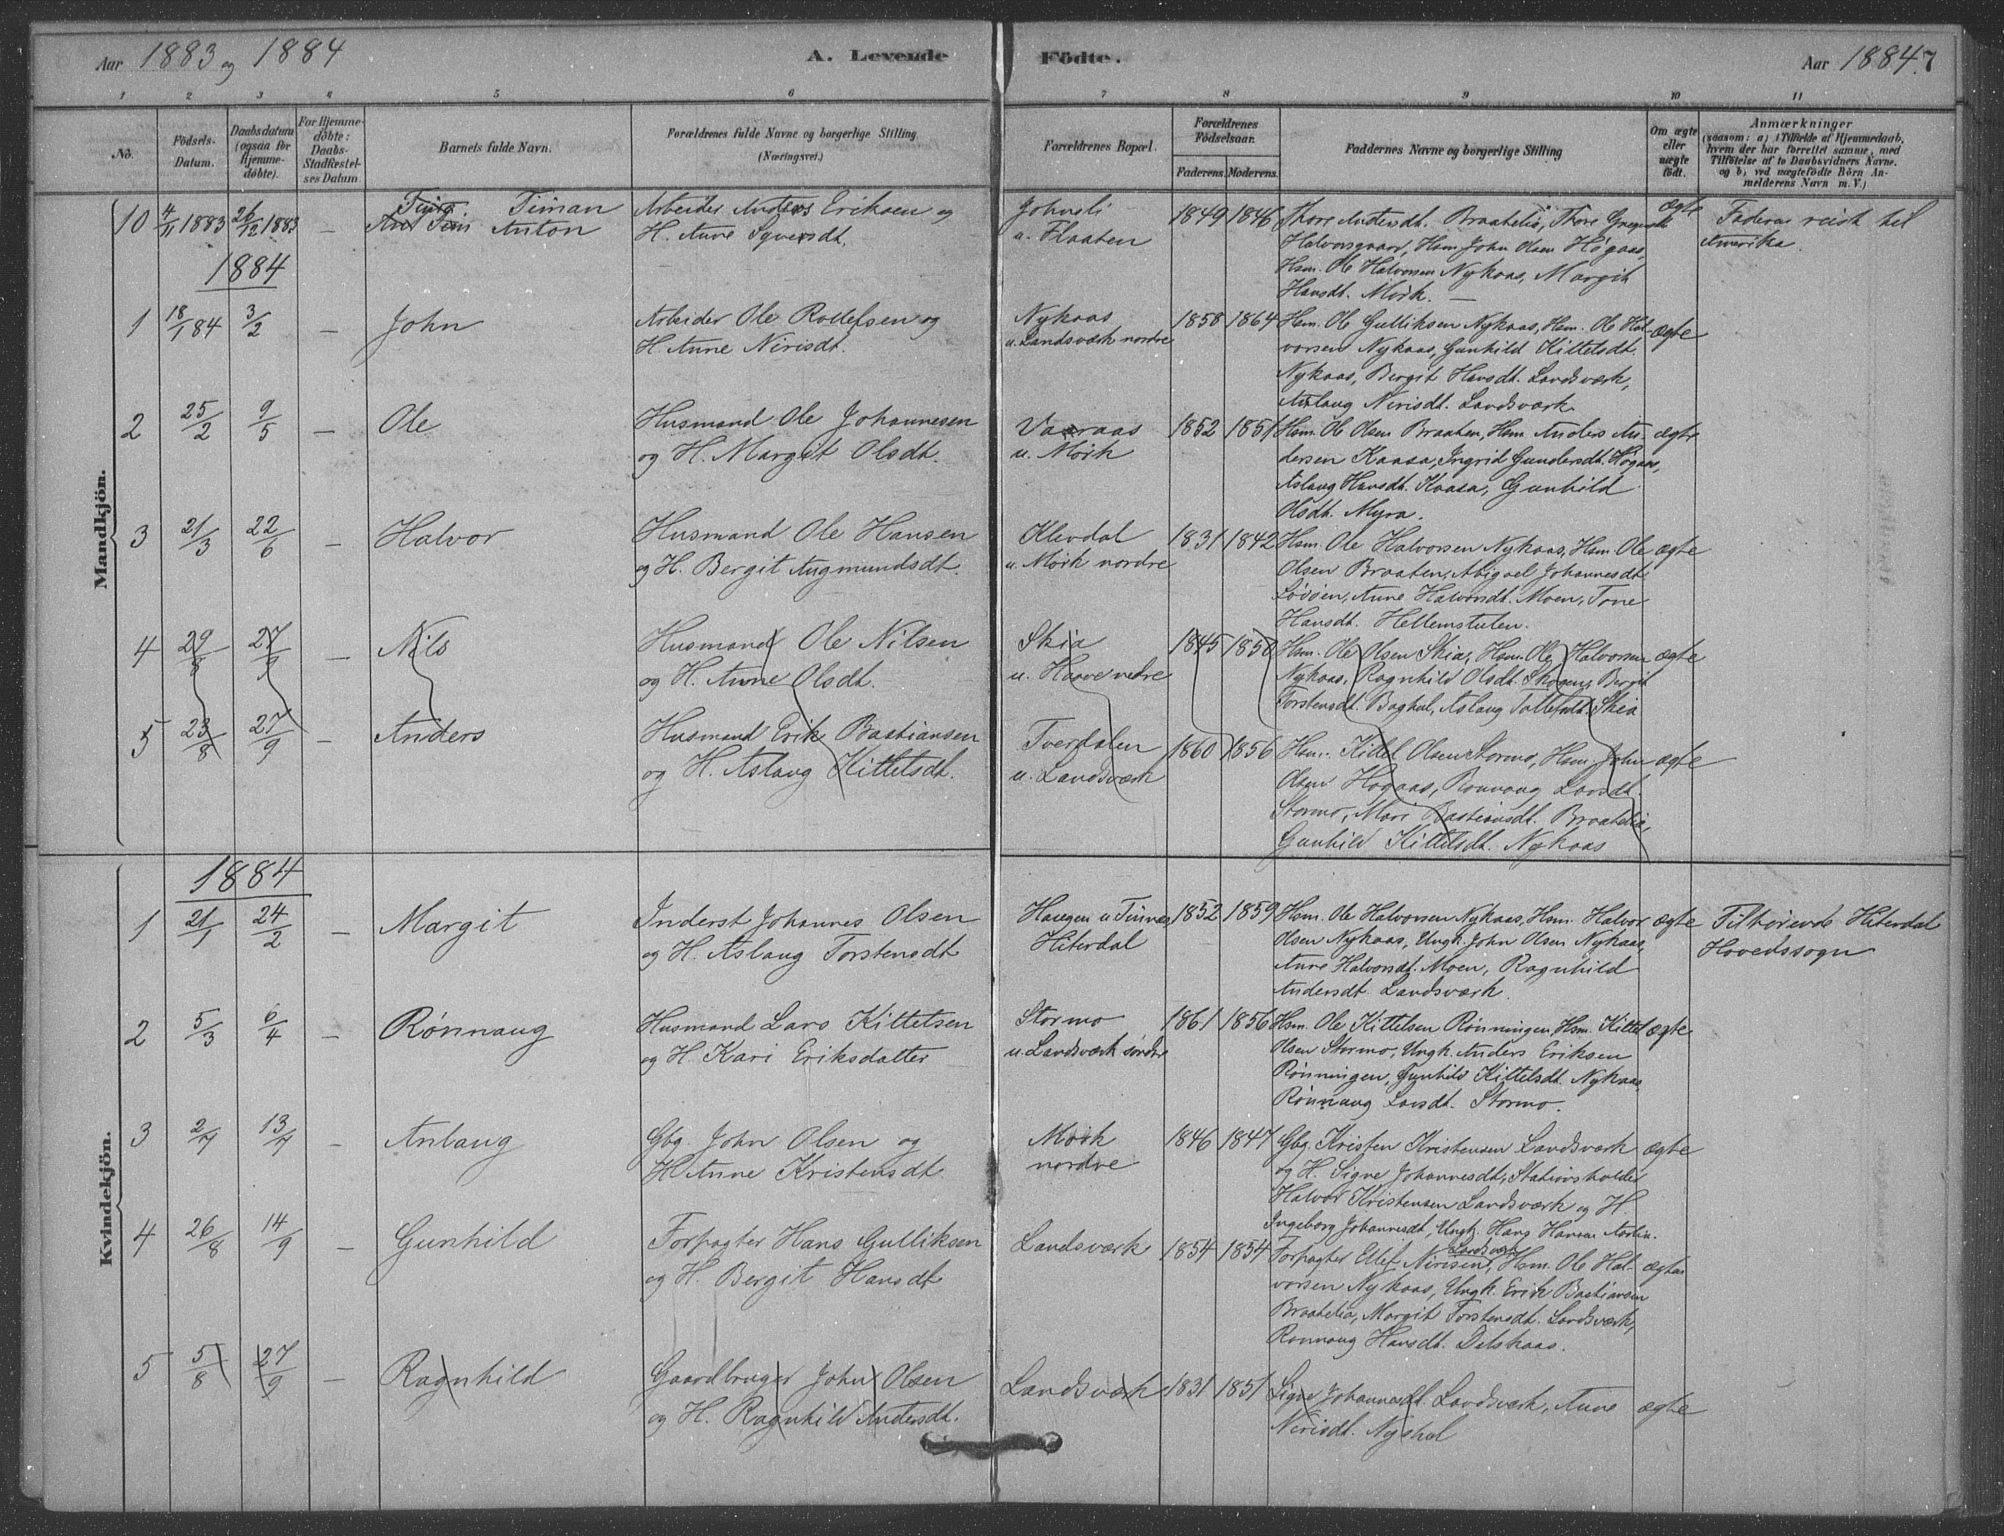 Aar 1883 og 1884 A. Levende Födte. Aar 1884. 7
1 2 3 4 5 6 7 8 9 10 11
No. Födsels-Datum. Daabsdatum (ogsaa for Hjemmedöbte). For Hjemmedöbte: Daabs-Stadfæstelses Datum. Barnets fulde Navn. Forældrenes fulde Navne og borgerlige Stilling. (Næringsvei.) Forældrenes Bopæl. Forældrenes Födselsaar. Faderens. Moderens. Faddernes Navne og borgerlige Stilling Om ægte eller uægte födt. Anmærkninger (saasom: a) i Tilfælde af Hjemmedaab, hvem der har forrettet samme, med Tilföielse af to Daabsvidners Navne. og b) ved uægtefödte Börn Anmelderens Navn m. V.)
Mandkjön.
10 4/11 1883 26/12 1883 — Timan Anton Arbeider Anders Eriksen og H. Anne Syversdt. Johnsli u. Flaaten 1849 1846 Thore Andersdt. Braatelia, Thore
Halvorsgaard, Hsm. John Olsen Högaas,
Hsm. Ole Halvorsen Nykaas, Margit
Hansdt. Mörk. — ægte Faderen reist til Amerika.
1884
1 18/1 84 3/2 — John Arbeider Ole Rollefsen og H. Anne Nirisdt. Nykaas u. Landsværk nordre 1858 1864 Hsm. Ole Gulliksen Nykaas, Hsm. Ole Hal-
vorsen Nykaas, Gunhild Kittelsdt.
Nykaas, Bergit Hansdt. Landsværk,
Aslaug Nirisdt. Landsværk ægte
2 25/2 9/5 — Ole Husmand Ole Johannesen og H. Margit Olsdt. Vaaraas u. Mörk 1852 1851 Hsm. Ole Olsen Braaten, Hsm. Anders An-
dersen Kaasa, Ingrid Gundersdt. Högaas,
Aslaug Hansdt. Kaasa, Gunhild
Olsdt. Myra. ægte
3 21/3 22/6 — Halvor Husmand Ole Hansen og H. Bergit Augmundsdt. Klevdal u. Mörk nordre 1831 1842 Hsm. Ole Halvorsen Nykaas, Hsm. Ole
Olsen Braaten, Abigael Johannesdt.
Anne Halvorsdt. Moen, Tone
Hansdt. Hellemstulen. ægte
4 29/8 27/9 — Nils Husmand Ole Nilsen og H. Anne Olsdt. Skia u. Haave nedre 1845 1850 Hsm. Ole Olsen Skia, Hsm. Ole Halvorsen
Nykaas, Ragnhild Olsdt. Skogen, Bergit
Torstensdt. Baghul, Aslaug Tollefsdt. Skia ægte
5 23/8 27/9 — Anders Husmand Erik Bastiansen og H. Aslaug Kittelsdt. Tverdalen u. Landsværk 1860 1856 Hsm. Kittel Olsen Stormo, Hsm. John
Olsen Högaas, Rönnaug Larsdt.
Stormo, Mari Bastiansdt. Braatelia,
Gunhild Kittelsdt. Nykaas ægte
Kvindekjön.
1884
1 21/1 24/2 — Margit Inderst Johannes Olsen og H. Aslaug Torstensdt. Haugen u Tinnæs Hiterdal 1852 1859 Hsm. Ole Halvorsen Nykaas, Hsm. Halvor
Olsen Nykaas, Ungk. John Olsen Nykaas,
Anne Halvorsdt. Moen, Ragnhild
Andersdt. Landsværk. ægte Tilhörende Hiterdal Hovedssogn
2 5/3 6/4 — Rönnaug Husmand Lars Kittelsen og H. Kari Eriksdatter Stormo u. Landsværk söndre 1861 1856 Hsm. Ole Kittelsen Rönningen, Hsm. Kittel
Olsen Stormo, Ungk. Anders Eriksen
Rönningen, Gunhild Kittelsdt. Nykaas
Rönnaug Larsdt. Stormo. ægte
3 2/7 13/7 — Anlaug Gbg. John Olsen og H. Anne Kristensdt. Mörk nordre 1846 1847 Gbg. Kristen Kristensen Landsværk
og H. Signe Johannesdt, Stationsholder
Halvor Kristensen Landsværk og H.
Ingeborg Johannesdt, Ungk. Hans Hansen ægte
4 26/8 14/9 — Gunhild Forpagter Hans Gulliksen og H. Bergit Hansdt Landsværk 1854 1854 Forpagter Ellef Nirisen Landsværk, Hsm. Ole Hal-
vorsen Nykaas, Ungk. Erik Bastiansen
Braatelia, Margit Torstensdt. Landsværk,
Rönnaug Hansdt. ægte
5 5/8 27/9 — Ragnhild Gaardbruger John Olsen og H. Ragnhild Andersdt. Landsværk 1831 1851 Signe Johannesdt. Landsværk, Anne
Nirisdt. Nyshul ægte